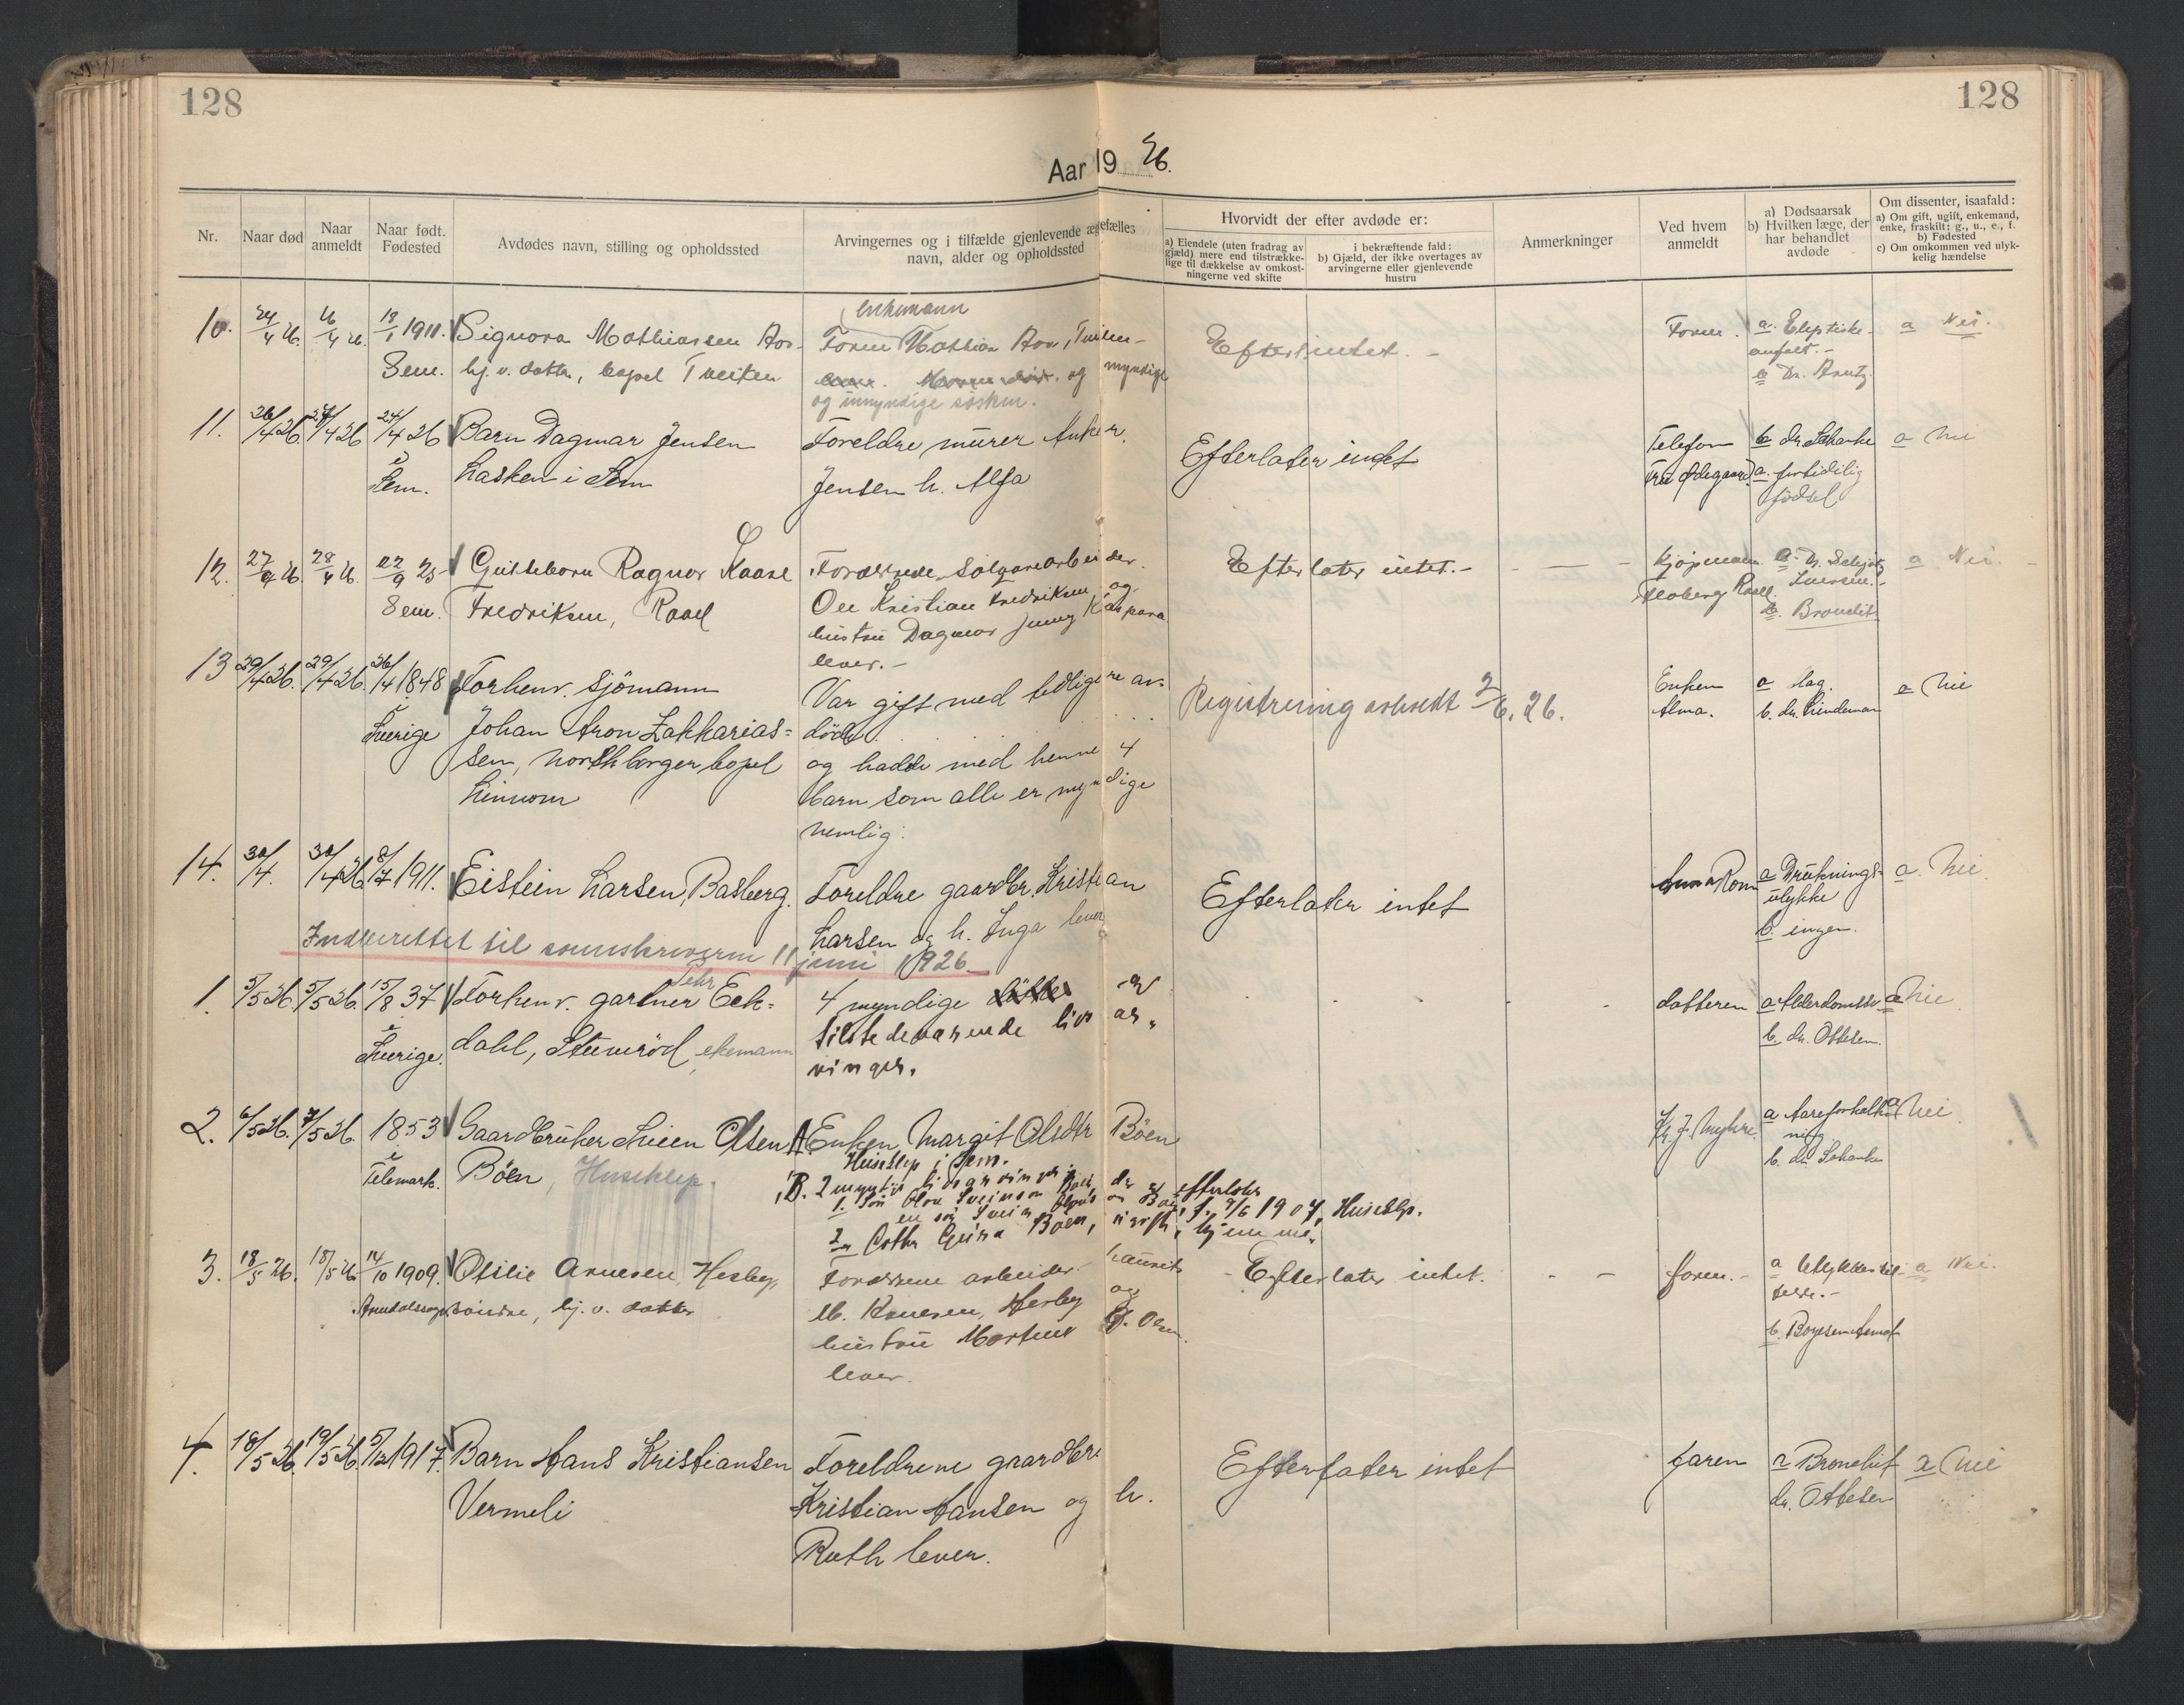 128
128
Aar 1926.
Nr.
Naar død
Naar anmeldt
Naar født. Fødested
Avdødes navn, stilling og opholdssted
Arvingernes og i tilfælde gjenlevende ægtefælles navn, alder og opholdssted
Hvorvidt der efter avdøde er:
a) Eiendele (uten fradrag av gjæld) mere end tilstrækkelige til dækkelse av omkostningerne ved skifte
i bekræftende fald:
b) Gjæld, der ikke overtages av arvingerne eller gjenlevende hustru
Anmerkninger
Ved hvem anmeldt
a) Dødsaarsak
b) Hvilken læge, der har behandlet avdøde
Om dissenter, isaafald:
a) Om gift, ugift, enkemand, enke, fraskilt: g., u., e., f.
b) Fødested
c) Om omkommen ved ulykkelig hændelse
10. 24/4 26. 26/4 26. 18/1 1911. Sem.
Signora Mathiassen Aas
hj. v. datter, bopel Tveiten
enkemann
Faren Mathias Aas, Tveiten
og myndige
og umyndige søsken.
Efterl. intet. -
Faren.
a. Eleptiske anfald. -
b Dr. Arntz.
a Nei.
11. 26/4 26 27/4 26 24/4 26 i Sem.
Barn Dagmar Jensen
Lasken i Sem
Foreldre murer Anker
Jensen h. Alfa
Efterlater intet
Telefon fra Ødegaard
b dr. Schanke
a. fortidilig fødsel
a nei
12. 27/4 26. 28/4 26. 22/9 25 Sem.
Guttebarn Ragnar Kaare
Fredriksen, Raael
Forældrene Sølvarearbeider
Ole Kristian Fredriksen og
hustru Dagmar Jenny Kaspara
lever. -
Efterlater intet. -
Kjøpmann
Floberg Raael.
b. Bronchit
a Nei.
13 29/4 26. 29/4 26. 26/4 1848 i Sverige
Forhenv. sjömann
Johan Aron Zakkarias=
sen, norsk borger bopel
Linnom
Var gift med tidligere av=
døde
og hadde med henne 4
barn som alle er myndige
nemlig:
Registrering avholdt 2/6. 26.
Enken Alma.
a slag.
b. dr. Lindeman
a nei
14. 30/4. 30/4 26 8/7 1911.
Eistein Larsen, Basberg.
Foreldre gaardbr. Kristian
Larsen og h. Inga lever
Efterlater intet
a Drukningsulykke
b. ingen.
a. nei.
Indberettet til sorenskriveren 11 juni 1926.
1. 5/5 26. 5/5 26. 15/8 37 i Sverige.
Forhenv. gartner Pehr Eck=
dahl, Stuveröd, ekemann
4 myndige
tilstedeværende livsar-
vinger.
datteren
a Alderdomssv.
b. dr. Ottesen.
a nei
2. 6/5 26. 7/5 26. 1853 i Telemark.
Gaardbruker Svein Olsen
Böen, Huseklep.
A Enken Margit Olsdtr Böen
Huseklep i Sem.
B. 2 myndige livsarvinger
1. Søn Olav Sveinson Böen, der er efterlater
en søn Svein Olavs søn Böen, f. 9/6 1907, Huseklep.
2. Datter Gunn Böen, ugift, hjemme.
K. J. Myhre.
a Aareforkalkning
b. dr. Schanke
a nei
3. 18/5 26. 18/5 26. 14/10 1909. Arendalssogn
Otilie Arnesen, Hesby,
søndre, hj. v. datter
Forældrene arbeider Laurits
M. Arnesen, Hesby og
hustru Martine G. Olsen.
lever.
Efterlater intet.
faren. -
a Ulykkestilfelde. -
a Nei.
4. 18/5 26. 19/5 26. 5/12 1917.
Barn Hans Kristiansen
Vermeli
Foreldrene gaardbr.
Kristian Hansen og h.
Ruth lever.
Efterlater intet
faren
a Bronchit
dr. Ottesen
a nei